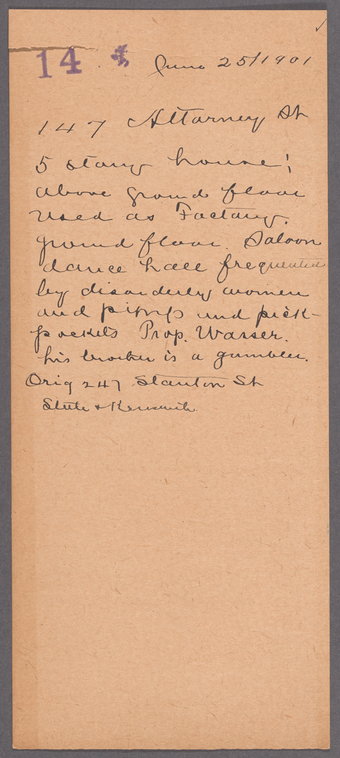 14 * June 25/1901
147 Attorney St
5 story house;
above ground floor
used as Factory.
ground floor. Saloon
dance hall frequented
by disorderly women
and pimps and pick-
pockets Prop. Wasser.
his brother is a gambler.
Orig 247 Stanton St
&